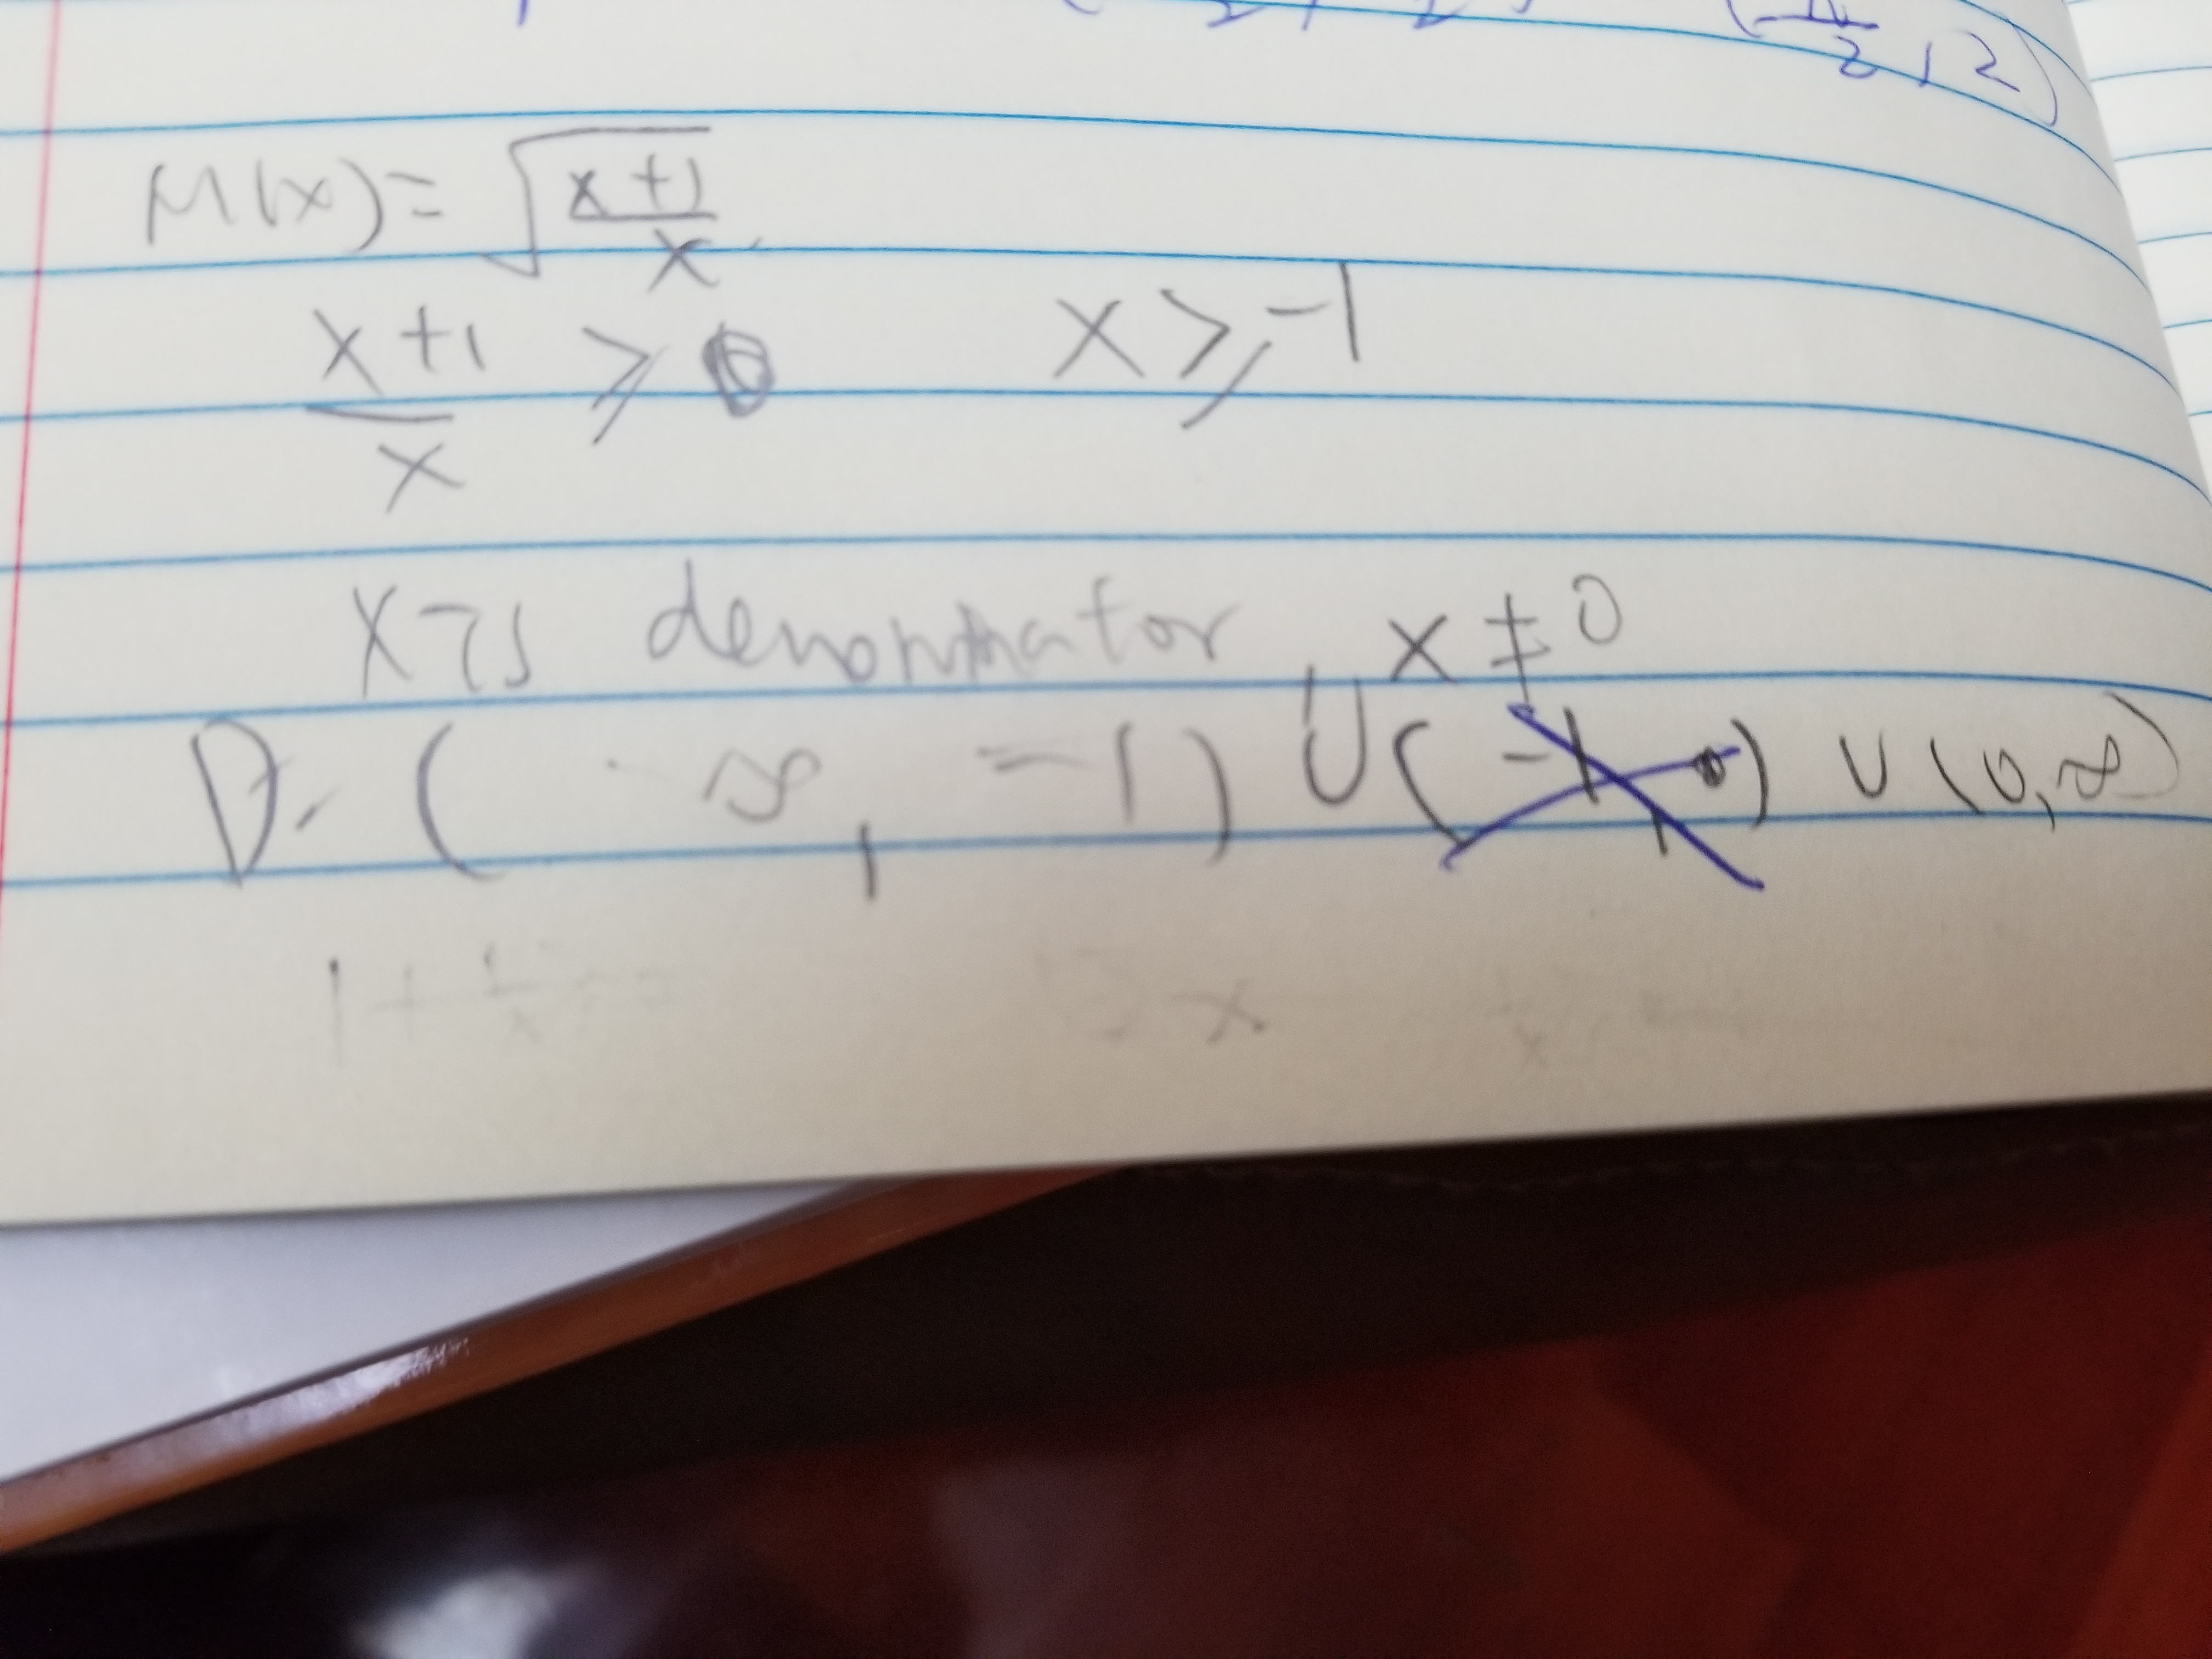 M(x) = √(x+1)/x
x+1/x ⩾ 0 x ⩾ -1
x is denominator x ≠ 0
D: (-∞, -1) ∪ (-1, 0) ∪ (0, ∞)